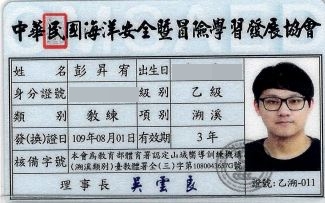 中華民國海洋安全暨冒險學習發展協會
姓名 彭昇宥 出生日
身分證號 級別 乙級
類別 教練 類別 溯溪
發(換)證日 109年08月01日 有效期 3年
核備字號 本會為教育部體育署認定山域嚮導訓練機構
(溯溪類別)臺教體署全(三)字第1080043657G號
理事長 吳雲良 證號:乙溯-011